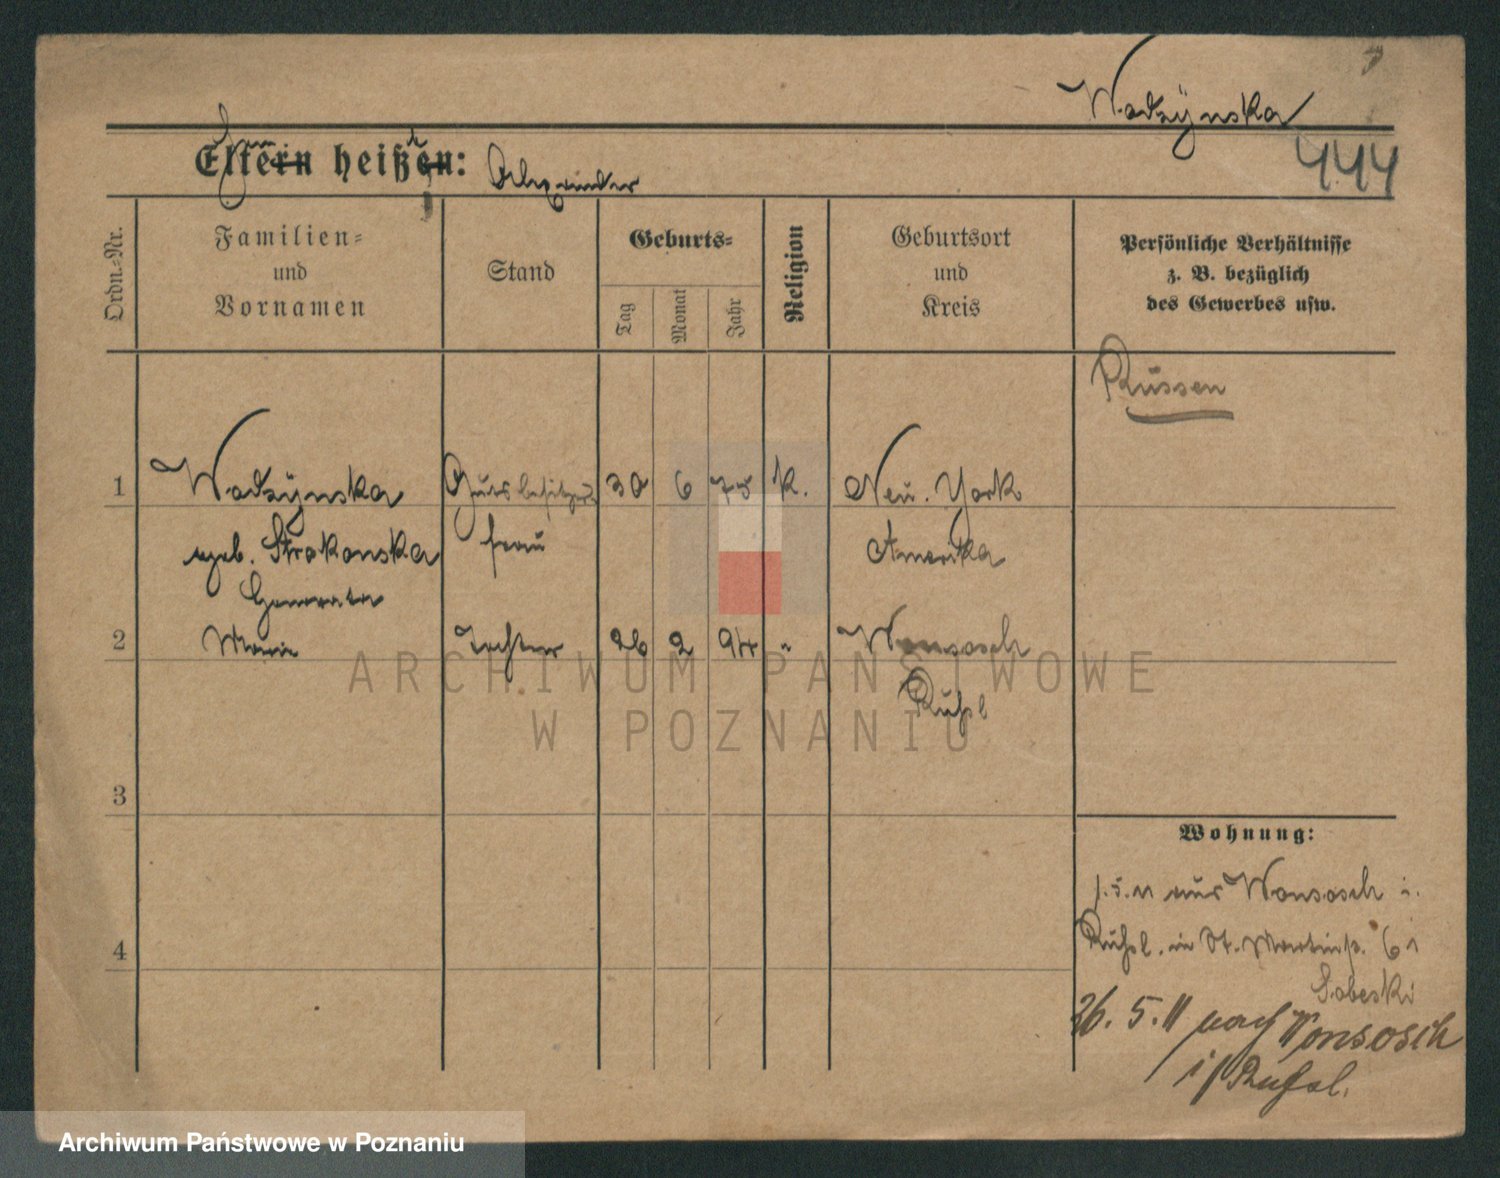 Wodzÿnska
444
Eltern heißen: Alexander
Ordn.-Nr.
Familien-
und
Vornamen
Stand
Geburts-
Tag
Monat
Jahr
Religion
Geburtsort
und
Kreis
Persönliche Verhältnisse
z. B. bezüglich
des Gewerbes usw.
Russen
1 Wodzÿnska Gutsbesitzers 30 6 75 k. Neu. York
geb. Strokonska frau Amerika
2 Marie Tochter 26 2 94 " Wonsosch
Rußl
3
Wohnung:
1.5.11 aus Wonsosch i.
Rußl. in St. Martinstr. 61
4
Sobeski
26. 5. 11 nach Wonsosch
i/ Rußl.
ARCHIWUM PAŃSTWOWE
W POZNANIU
Archiwum Państwowe w Poznaniu